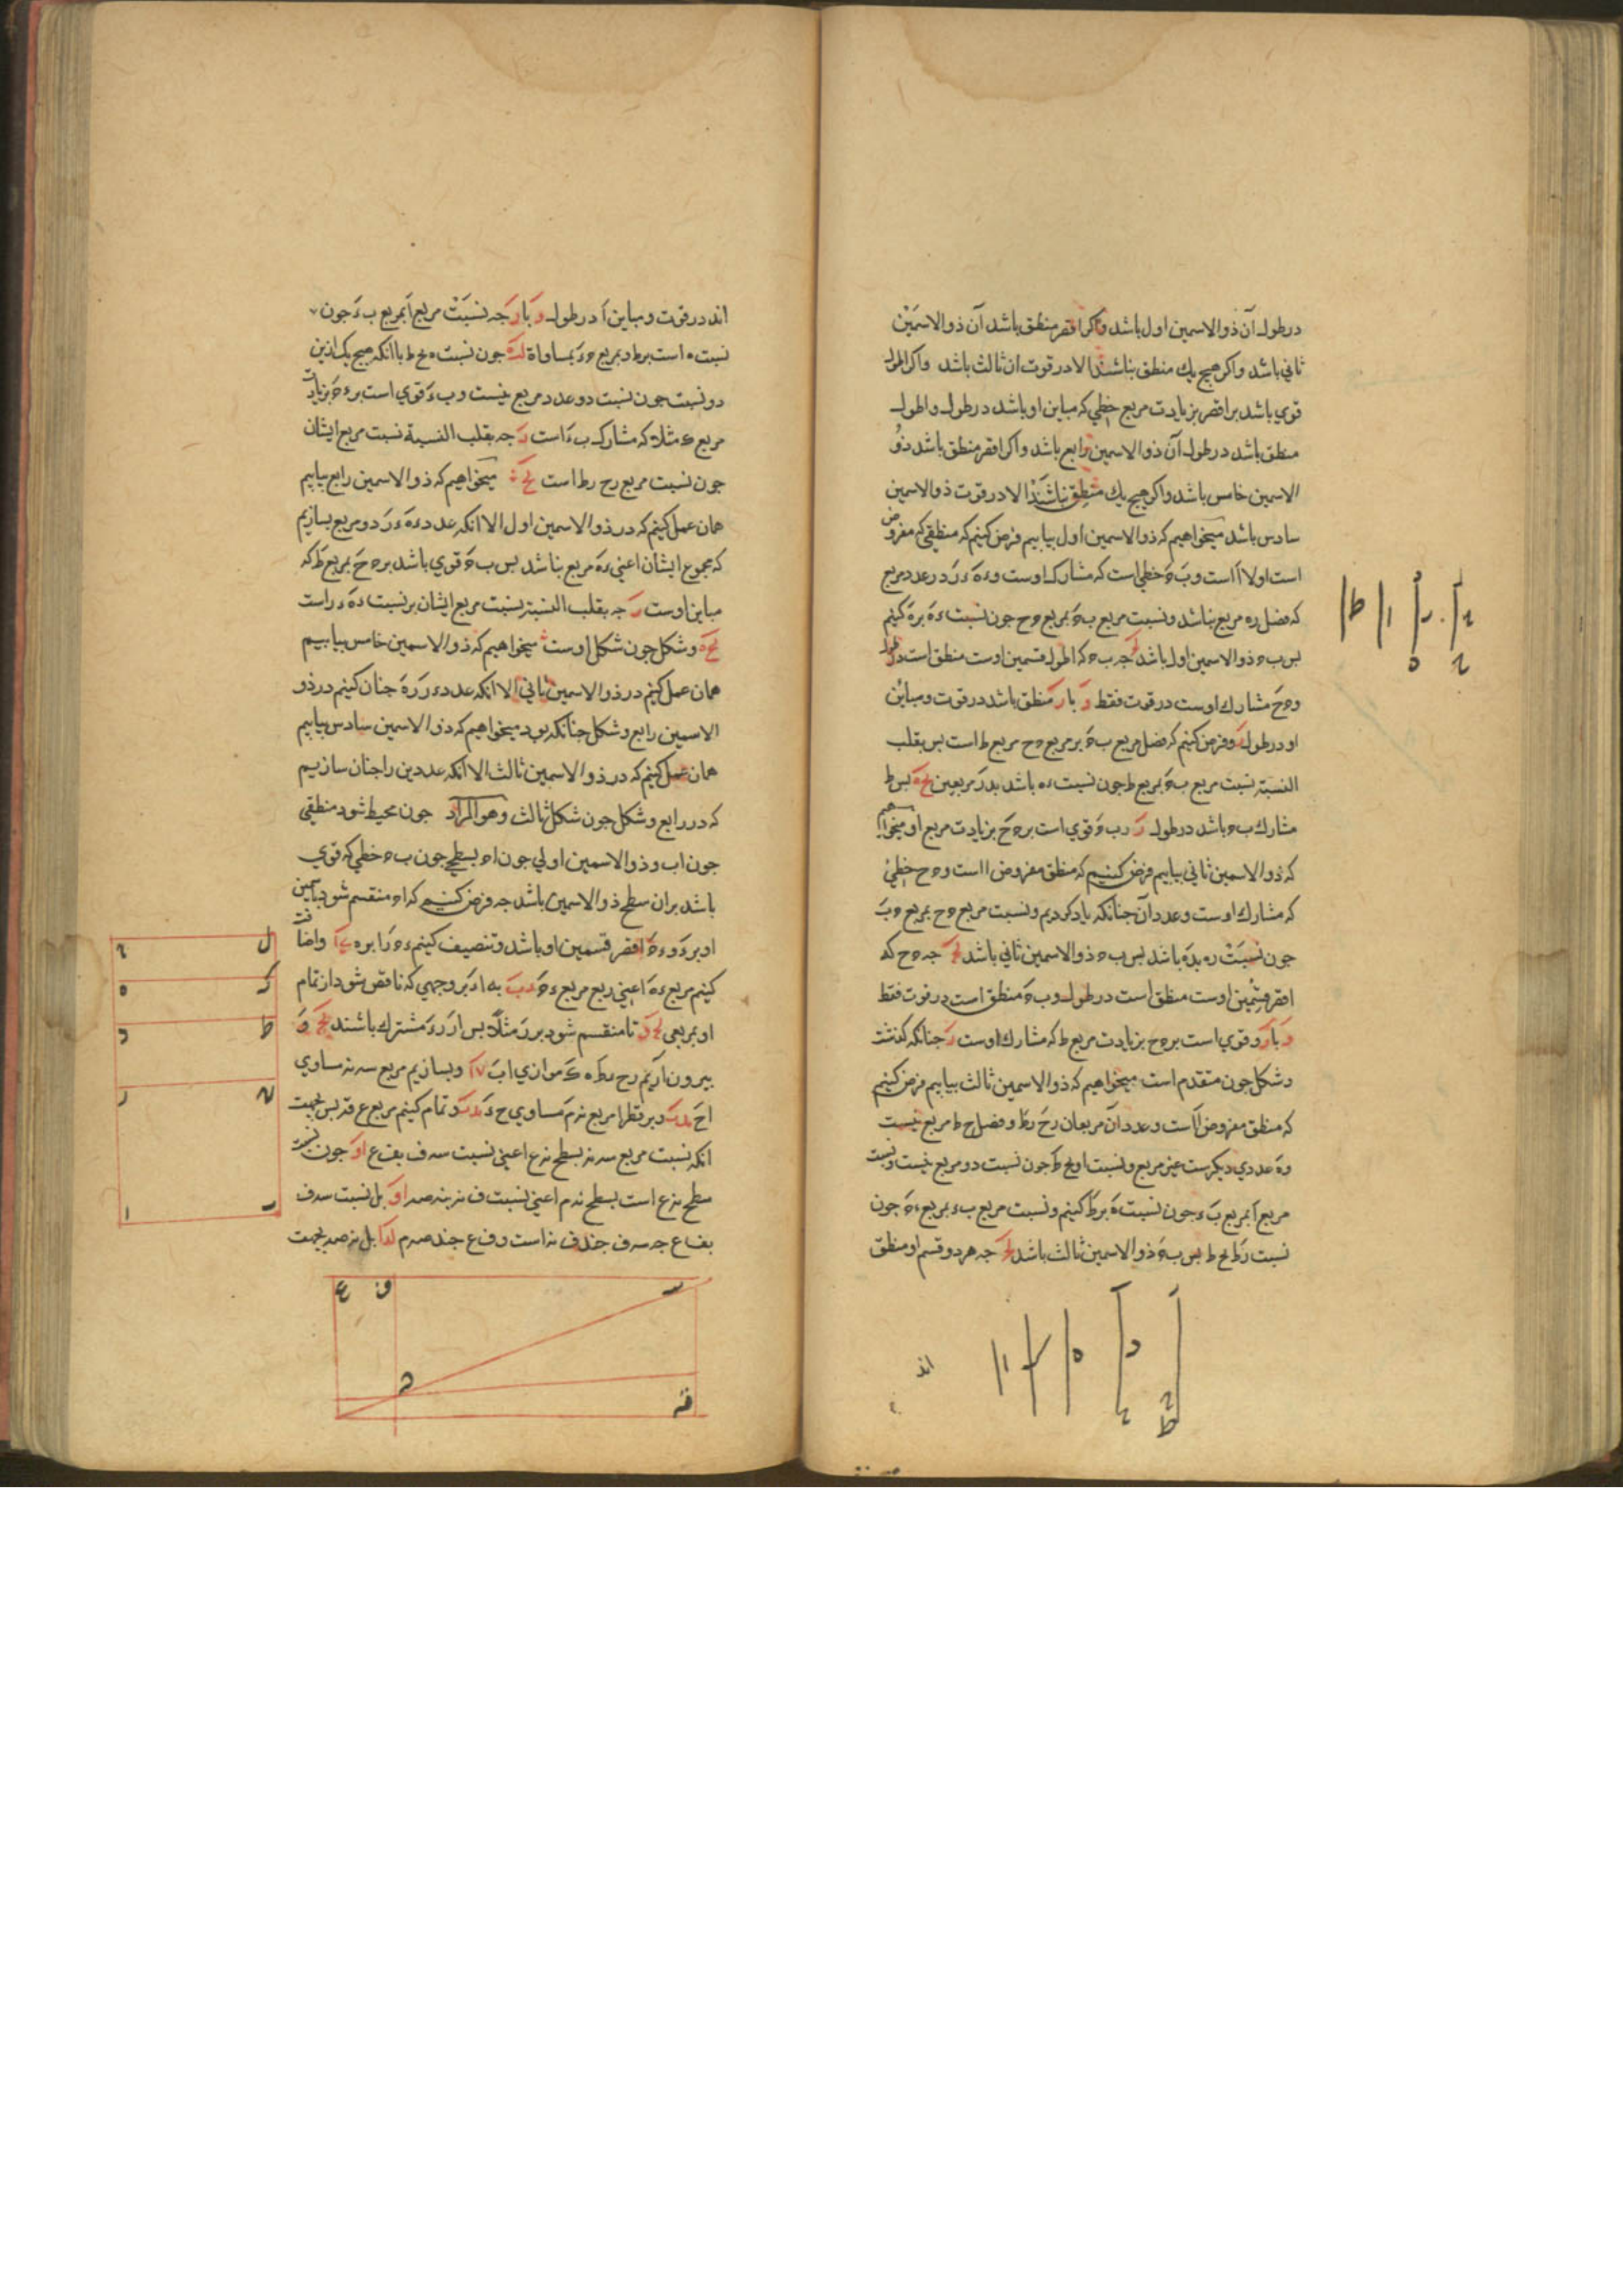 در طول آن ذو الاسمین اول باشد و اکر اقصر منطق باشد آن ذو الاسمین
ثانی باشد و اکر هیج یك منطق نباشند الا در قوت ان ثالث باشد و اکر اطول
قوی باشد بر اقصر بزیادت مربع خطی که مباین او باشد در طول و اطول
منطق باشد در طول آن ذو الاسمین رابع باشد و اکر اقصر منطق باشد ذو
الاسمین خامس باشد و اکر هیج یك منطق نباشند الا در قوت ذو الاسمین
سادس باشد میخواهیم که ذو الاسمین اول بیابیم فرض کنیم که منطقی که مفروض
است اولا ا است و ب ح خطی است که مشارك اوست و ءه ءر در عدد مربع
که فضل ره مربع نباشد و نسبت مربع ب ح بمربع ح جون نسبت ءه بره کنیم
بس ب ه ذو الاسمین اول باشد جه ب ح که اطول قسمین اوست منطق است در طول
و ه ح مشارك اوست در قوت فقط و با ر منطق باشد در قوت و مباین
او در طول و فرض کنیم که فضل مربع ب ح بر مربع ه ح مربع ط است بس بقلب
النسبة نسبت مربع ب ح بمربع ط جون نسبت ءه باشد بدر مربعین بس ط
مشارك ب ح باشد در طول ر و ب ح قوی است بر ه ح بزیادت مربع او میخواهیم
که ذو الاسمین ثانی بیابیم فرض کنیم که منطق مفروض ا است و ه ح خطی
که مشارك اوست و عدد آن جنانکه یاد کردیم و نسبت مربع ه ح بمربع ح ب
جون نسبت ره بده باشد بس ب ه ذو الاسمین ثانی باشد جه ه ح که
اقصر قسمین اوست منطق است در طول و ب ح منطق است در قوت فقط
و با ر و قوی است بر ه ح بزیادت مربع ط که مشارك اوست ر جنانکه کذشت
و شکل جون متقدم است میخواهیم که ذو الاسمین ثالث بیابیم فرض کنیم
که منطق مفروض ا است و عدد ان مربعان رح رط و فضل ح ط مربع نیست
و ه عددی دیکرست غیر مربع و نسبت او بح ط جون نسبت دو مربع نیست و نسبت
مربع ا بمربع ب ء جون نسبت ه برط کنیم و نسبت مربع ب ء بمربع ء ح جون
نسبت رط بح ط بس ب ح ذو الاسمین ثالث باشد جه هر دو قسم او منطق
اند
اند در قوت و مباین ا در طول و با ر جه نسبت مربع ا بمربع ب ء جون
نسبت ه است برط و بمربع ح ء بمساواة جون نسبت ه بح ط با انکه هیج یك ازین
دو نسبت جون نسبت دو عدد مربع نیست و ب ء قوی است بر ء ح بزیادت
مربع ك مثلا که مشارك ب ء است ر جه بقلب النسبة نسبت مربع ایشان
جون نسبت مربع رح رط است میخواهیم که ذو الاسمین رابع بیابیم
همان عمل کنیم که در ذو الاسمین اول الا انکه عدد ءه ءر دو مربع بسازیم
که مجموع ایشان اعنی ءه مربع نباشد بس ب ح قوی باشد بر ه ح بمربع ط که
مباین اوست ر جه بقلب النسبة نسبت مربع ایشان بر نسبت ءه ءر است
و شکل جون شکل اوست میخواهیم که ذو الاسمین خامس بیابیم
همان عمل کنیم در ذو الاسمین ثانی الا انکه عدد ءر ره جنان کنیم در ذو
الاسمین رابع و شکل جنانکه بود میخواهیم که ذو الاسمین سادس بیابیم
همان عمل کنیم که در ذو الاسمین ثالث الا انکه عددین را جنان سازیم
که در رابع و شکل جون شکل ثالث وهو المراد جون محیط شود منطقی
جون اب و ذو الاسمین اولی جون اح بسطحی جون ب ح خطی که قوی
باشد بران سطح ذو الاسمین باشد جه فرض کنیم که اح منقسم شود باسمین
او بر ء و ء ح اقصر قسمین او باشد و تنصیف کنیم ء ح را بر ه و اضافت
کنیم مربع ءه اعنی ربع مربع ء ح به اء بر وجهی که ناقص شود از تمام
او بمربعی تا منقسم شود بر ر مثلا بس ار رء مشترك باشند
بیرون اریم رح ءط ه ك موازی اب و بسازیم مربع سه نه مساوی
اح و بر قطر ا مربع نه م مساوی ح ء و تمام کنیم مربع ع قه بس بجهت
انکه نسبت مربع سه نه بسطح نه ع اعنی نسبت سه ف بف ع جون نسبت
سطح نه ع است بسطح نه م اعنی نسبت ف نه بنه صه بل نسبت سه ف
بف ع جه سه ف جند ف نه است و ف ع جند صه م بل نه صه بجهت